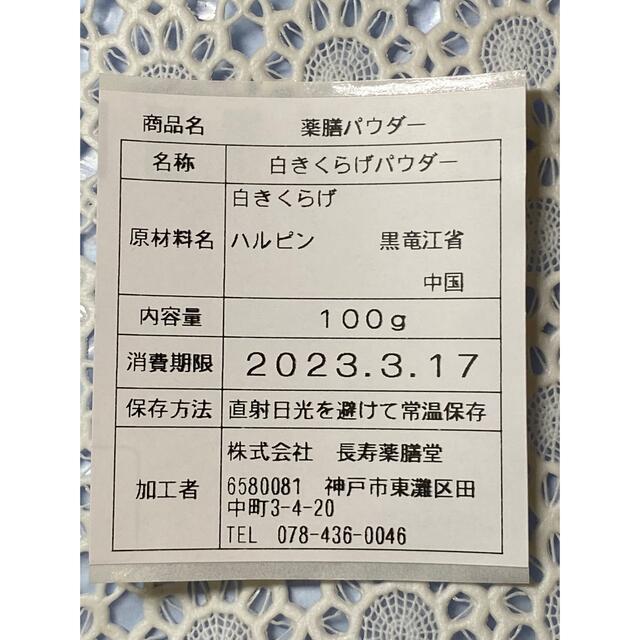 商品名 薬膳パウダー
名称 白きくらげパウダー
原材料名 白きくらげ
ハルピン 黒竜江省
中国
内容量 100g
消費期限 2023.3.17
保存方法 直射日光を避けて常温保存
加工者 株式会社 長寿薬膳堂
6580081 神戸市東灘区田
中町3-4-20
TEL 078-436-0046